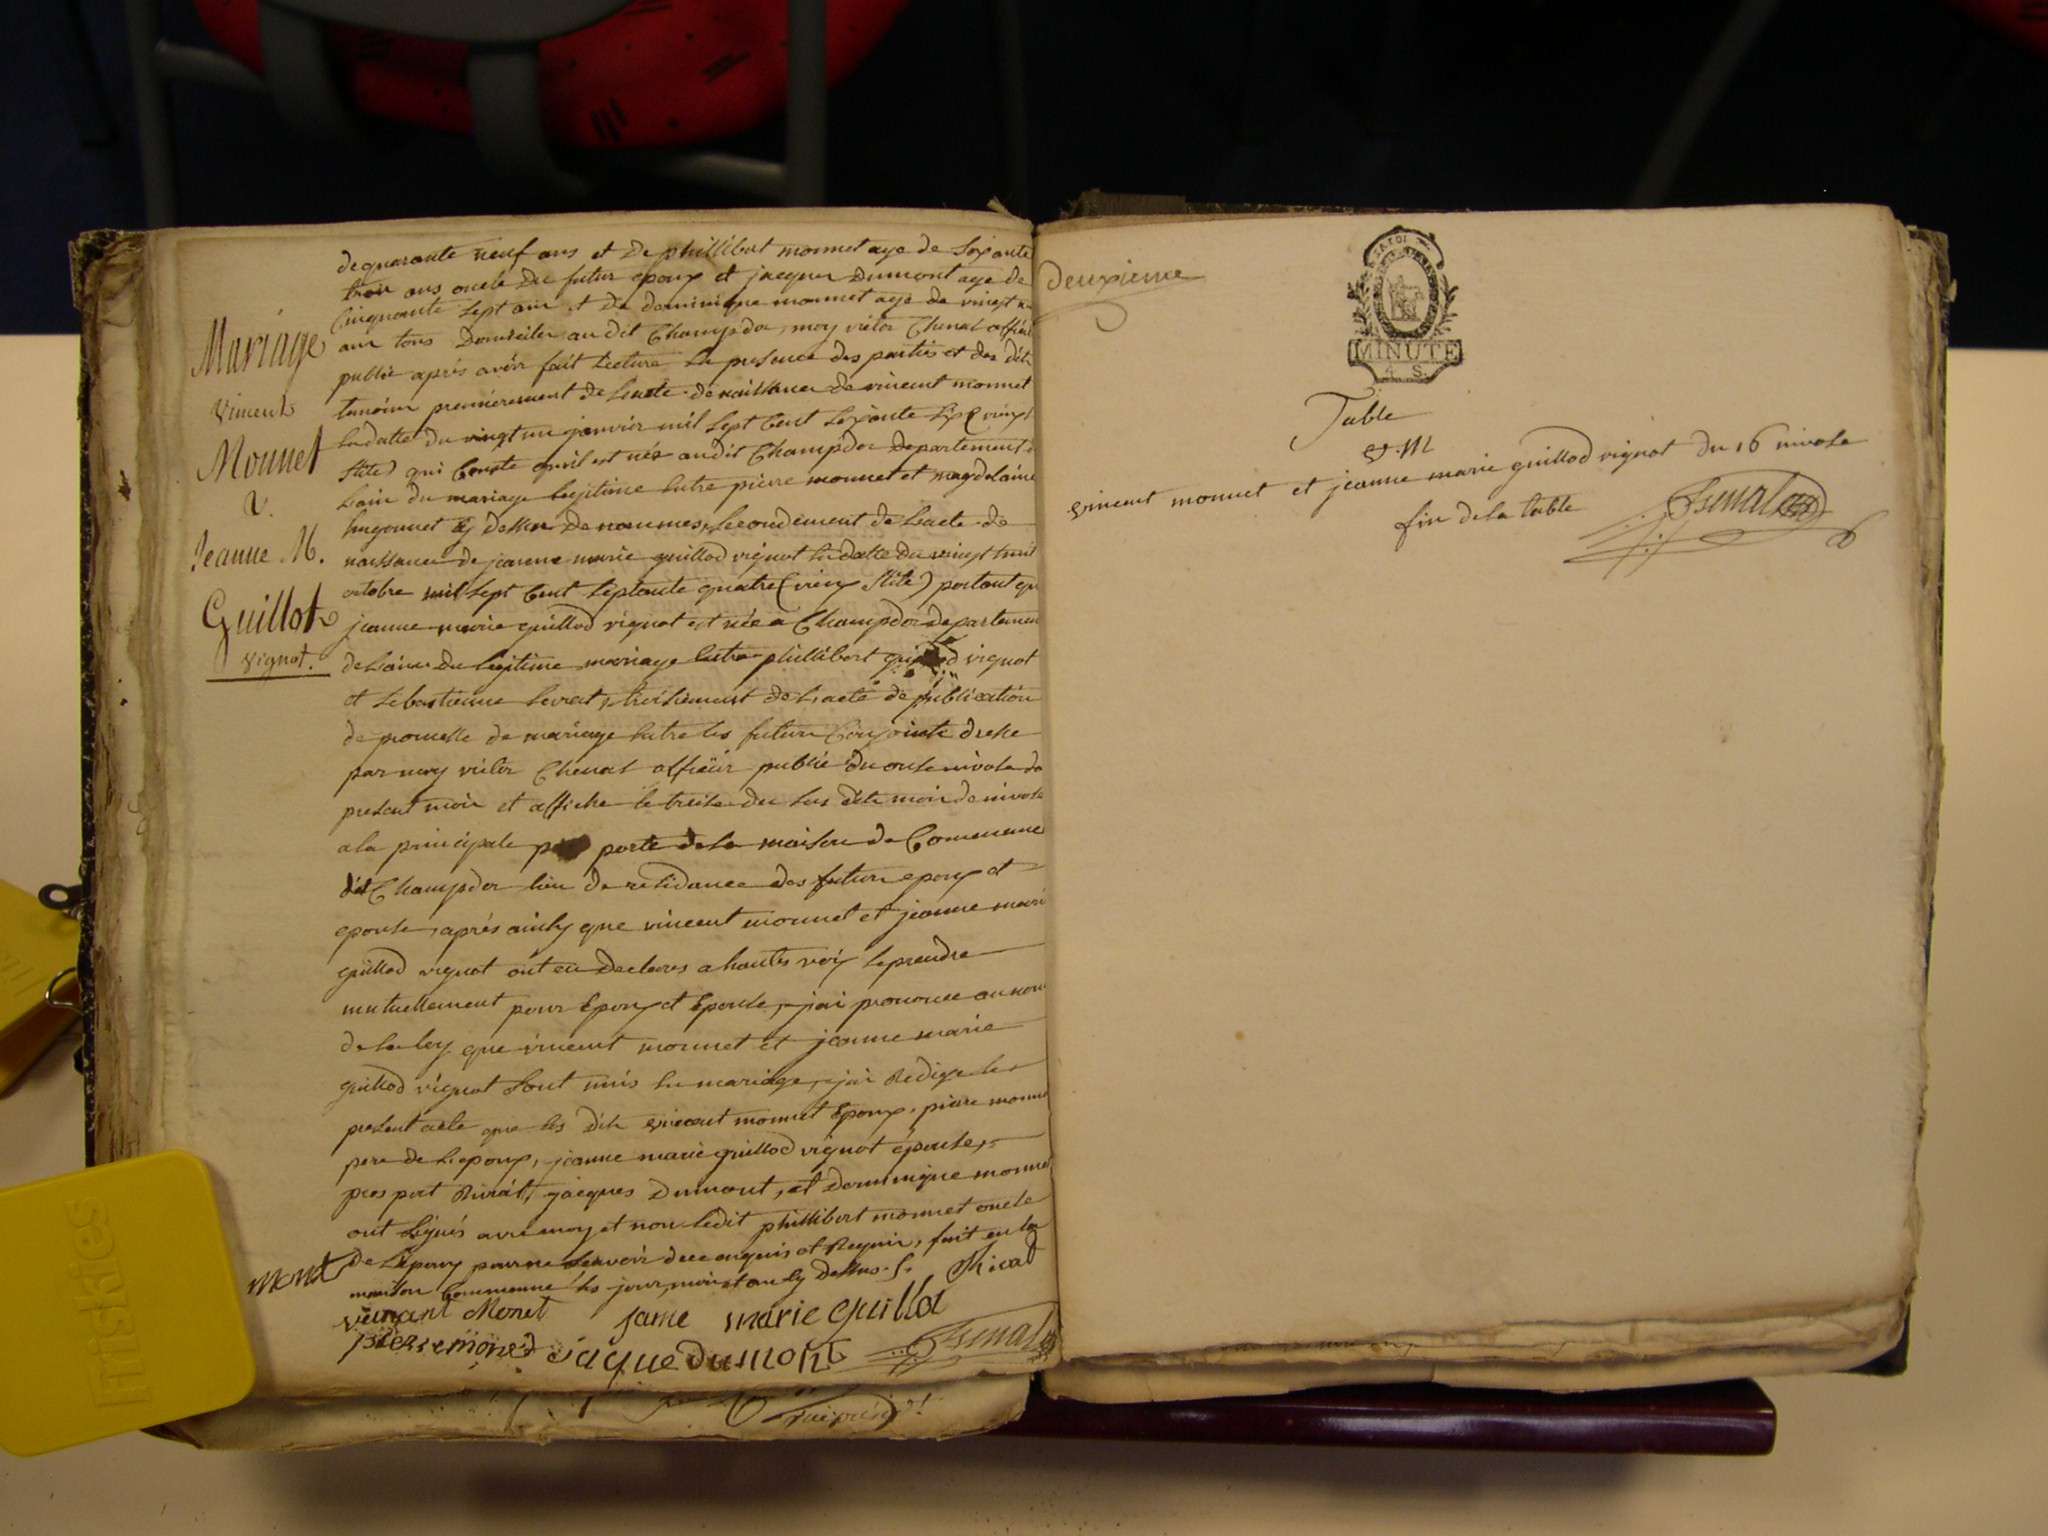 Mariage
Vincent
Monnet
V.
Jeanne M.
Guillot
Vignot.
de quarante neuf ans et De phillibert monnet aye de soixante
trois ans oncle Du futur epoux et jacques Dumont aye de
Cinquante sept ans et De dominique monnet aye de vingt
ans tous Domicilies au dit Champdor, moy victor Chenal officier
public aprés avoir fait lecture En presence des parties et des dits
temoins premierement de Lacte de naissance de vincent monnet
En datte du vingt un janvier mil sept Cent soixante six (vieux
stile) qui Conste qu'il est nés audit Champdor Departement de
Lain du mariage legitime Entre pierre monnet et magdelaine
hugonnet Cy dessus De nommes, secondement de Lacte de
naissance de jeanne marie guillod vignot En datte du vingt huit
octobre mil sept Cent septante quatre (vieux stile) portant que
jeanne marie guillod vignot est née a Champdor departement
de Lain Du legitime mariage Entre phillibert guillod vignot
et sebastienne levrat, troisiement de Lacte de publication
de promesse de mariage Entre les futurs Conjoints dresse
par moy victor Chenal officier public du onse nivose du
present mois et affiche le treise du sus dit mois de nivose
a la principale porte de la maison de Commune
dit Champdor lieu de residance des futurs epoux et
epouse, aprés ainsy que vincent monnet et jeanne marie
guillod vignot ont eu declares a hautes voix se prendre
mutuellement pour Epoux et Epouse, j'ai prononce au nom
de la loy que vincent monnet et jeanne marie
guillod vignot sont unis En mariage, j'ai Redige le
present acte que les dits vincent monnet Epoux, pierre monnet
pere de Lepoux, jeanne marie guillod vignot épouse,
prospert Rivat, jacques Dumont, et Dominique monnet
ont signés avec moy et non ledit phillibert monnet oncle
De Lepoux pour ne scavoir de ce enquis et Requis, fait en la
maison Commune les jour, mois et an Cy dessus. Rivat
monet
vincant Monet jame marie guillot
pierre monet jaque dumont Chenal
Deuxieme
MINUTE
4. S.
Table
M
vincent monnet et jeanne marie guillod vignot du 16 nivose
fin de la table Chenal
HStiCS